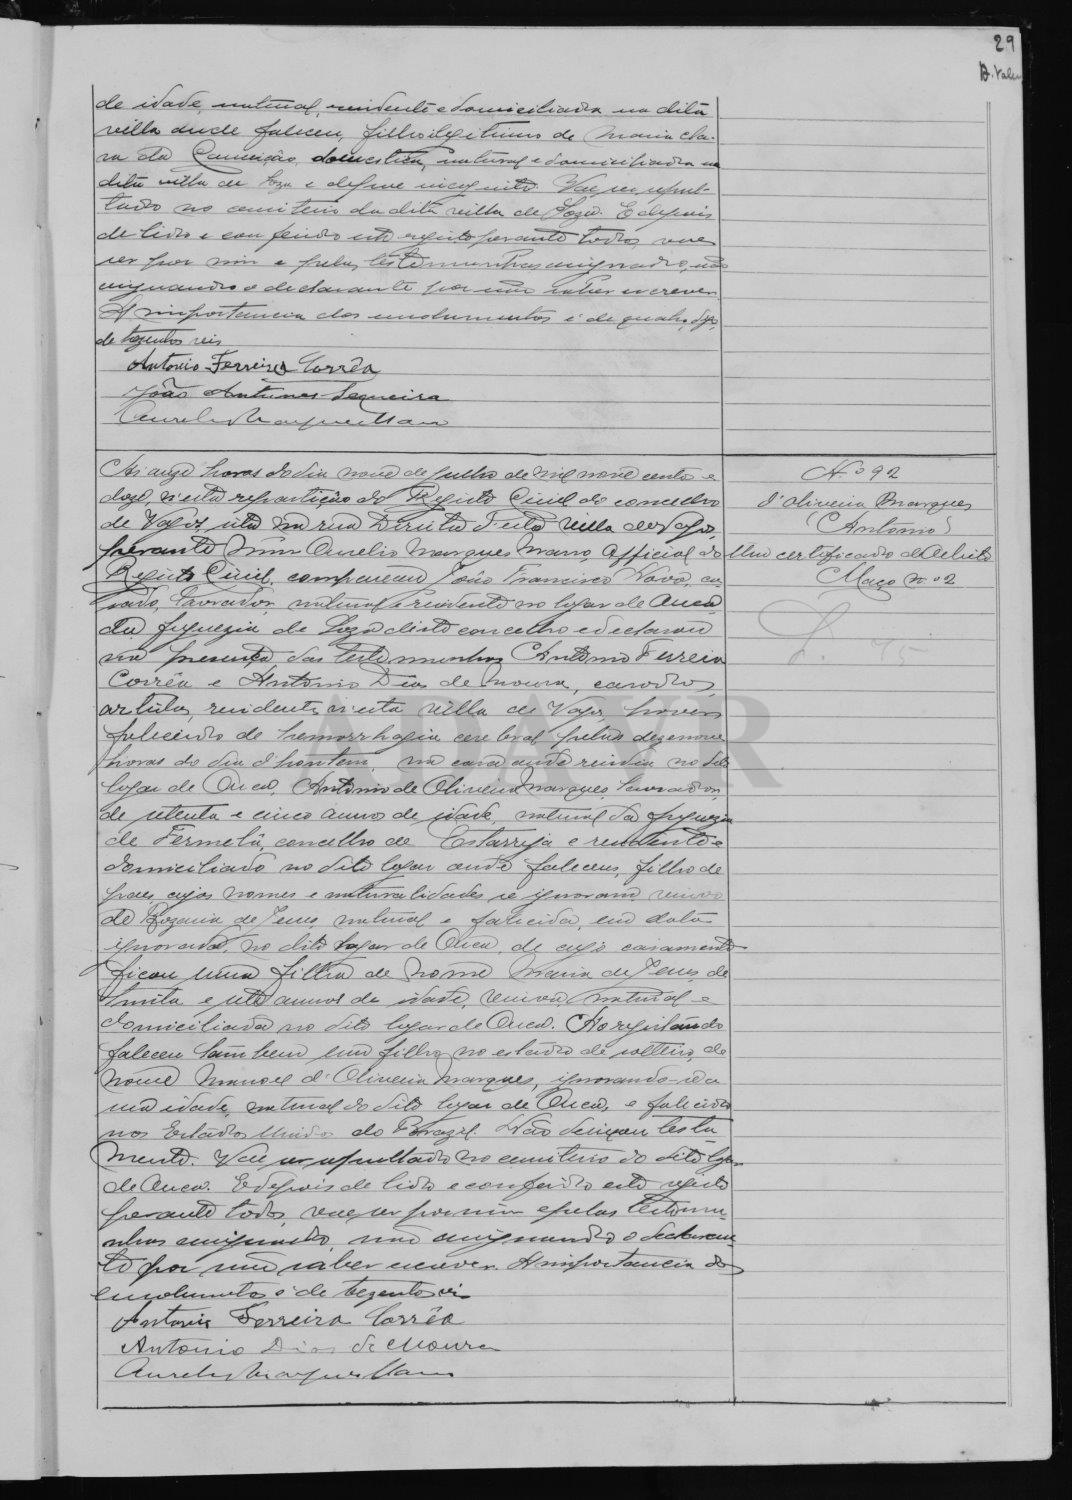 29
de idade, natural, residente e domiciliada na dita
villa onde faleceu, filho illegitimo de Maria Cla-
ra da Conceição, domestica, natural e domiciliada na
dita villa de Soza e de pae incognito. Vae ser sepul-
tado no cemiterio da dita villa de Soza. E depois
de lido e conferido este registo perante todos, vae
ser por mim e pelas testemunhas assignado, não
assignando o declarante por não saber escrever.
A importancia dos emolumentos é de
de trezentos reis
Antonio Ferreira Corrêa
João Antunes Sequeira
Aurelio Marques Mano
Ás onze horas do dia nove de Julho de mil nove centos e
doze, n'esta repartição do Registo Civil do concelho
de Vagos, sita na rua Direita d'esta villa de Vagos,
perante mim Aurelio Marques Mano, Official do
Registo Civil, compareceu João Francisco Novo, ca-
sado, lavrador, natural e residente no logar de Ouca
da freguezia de Soza d'este concelho e declarou
na presença das testemunhas Antonio Ferreira
Corrêa e Antonio Dias de Moura, casados,
artistas, residentes n'esta villa de Vagos, haver
falecido de hemorrhagia cerebral pelas dezenove
horas do dia d'hontem, na casa onde residia no dito
logar de Ouca, Antonio de Oliveira Marques, lavrador,
de setenta e cinco annos de idade, natural da freguezia
de Fermelã, concelho de Estarreja e residente e
domiciliado no dito logar onde faleceu, filho de
paes cujos nomes e naturalidades se ignoram, viuvo
de Rozaria de Jesus, natural e falecida, em data
ignorada, no dito logar de Ouca, de cujo casamento
ficou uma filha de nome Maria de Jesus de
trinta e sete annos de idade, viuva, natural e
domiciliada no dito logar de Ouca. Ao registando
faleceu tambem um filho no estado de solteiro, de
nome Manoel d'Oliveira Marques, ignorando-se a
sua idade, natural do dito logar de Ouca, e falecido
nos Estados Unidos do Brazil. Não deixou testa-
mento. Vae ser sepultado no cemiterio do dito logar
de Ouca. E depois de lido e conferido este registo
perante todos, vae ser por mim e pelas testemu-
nhas assignado, não assignando o declaran-
te por não saber escrever. A importancia dos
emolumentos é de trezentos reis
Antonio Ferreira Corrêa
Antonio Dias de Moura
Aurelio Marques Mano
N.º 92
d'Oliveira Marques
(Antonio)
Um certificado de obito
Maço n.º 2
ADAVR